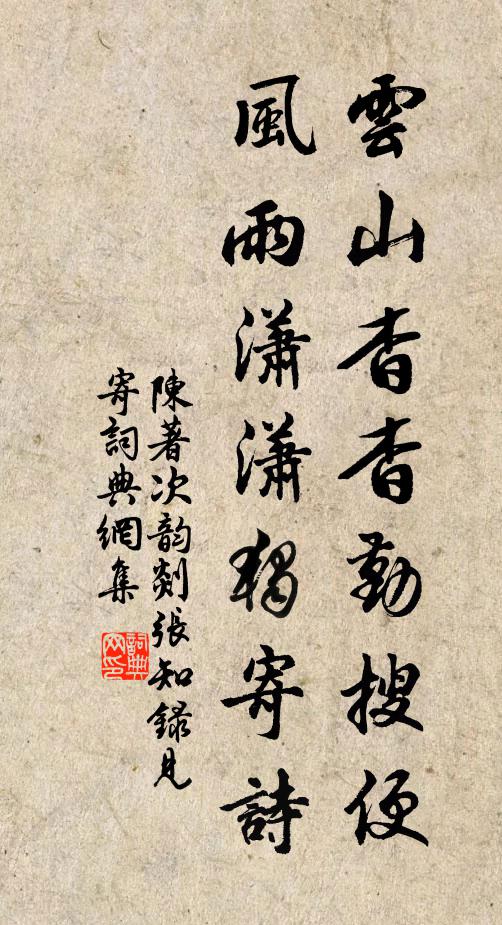 雲山杳杳勤搜便
風雨瀟瀟獨寄詩
陳著次韵剡張知錄見
寄詞典網集
詞典网印